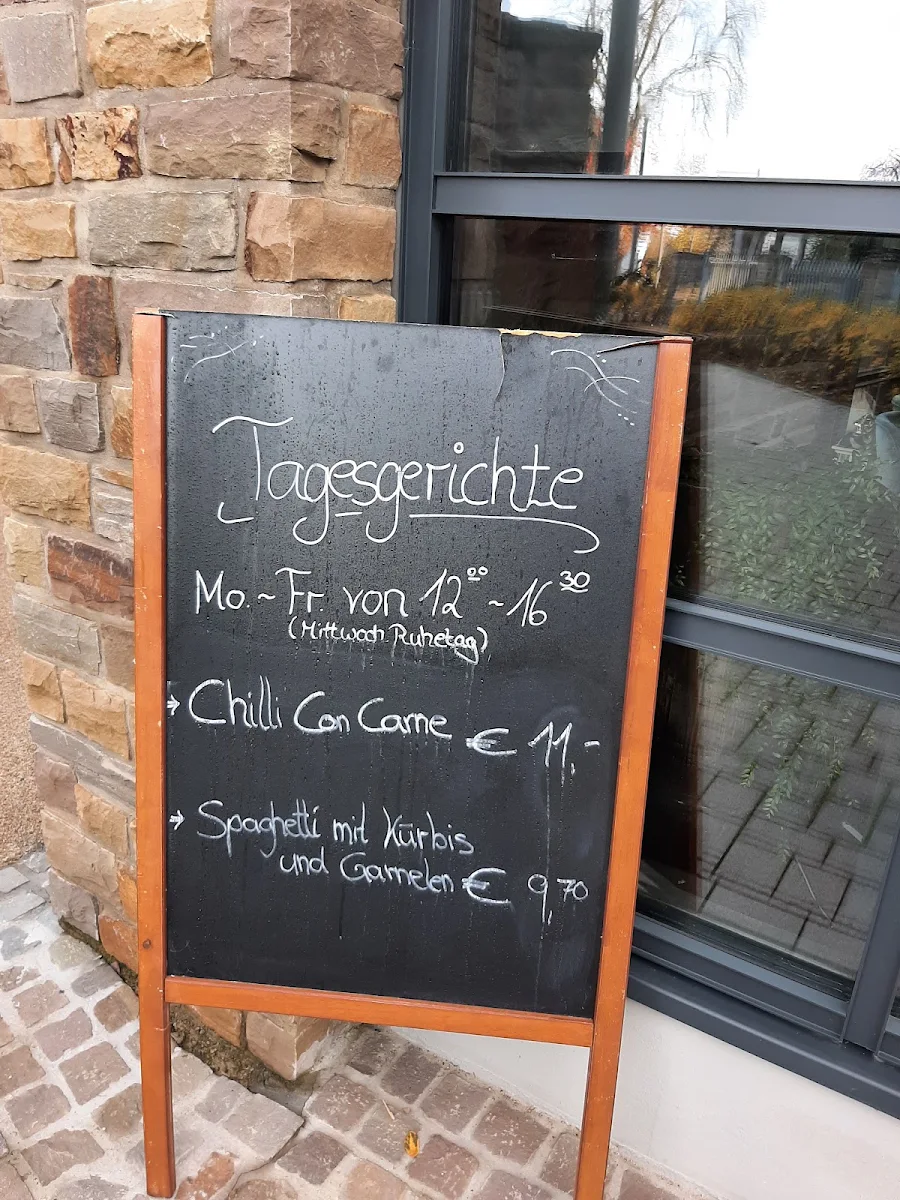 Tagesgerichte
Mo. ~ Fr. von 12⁰⁰ ~ 16³⁰
(Mittwoch Ruhetag)
→ Chilli Con Carne € 11,-
→ Spaghetti mit Kürbis
und Garnelen € 9,70